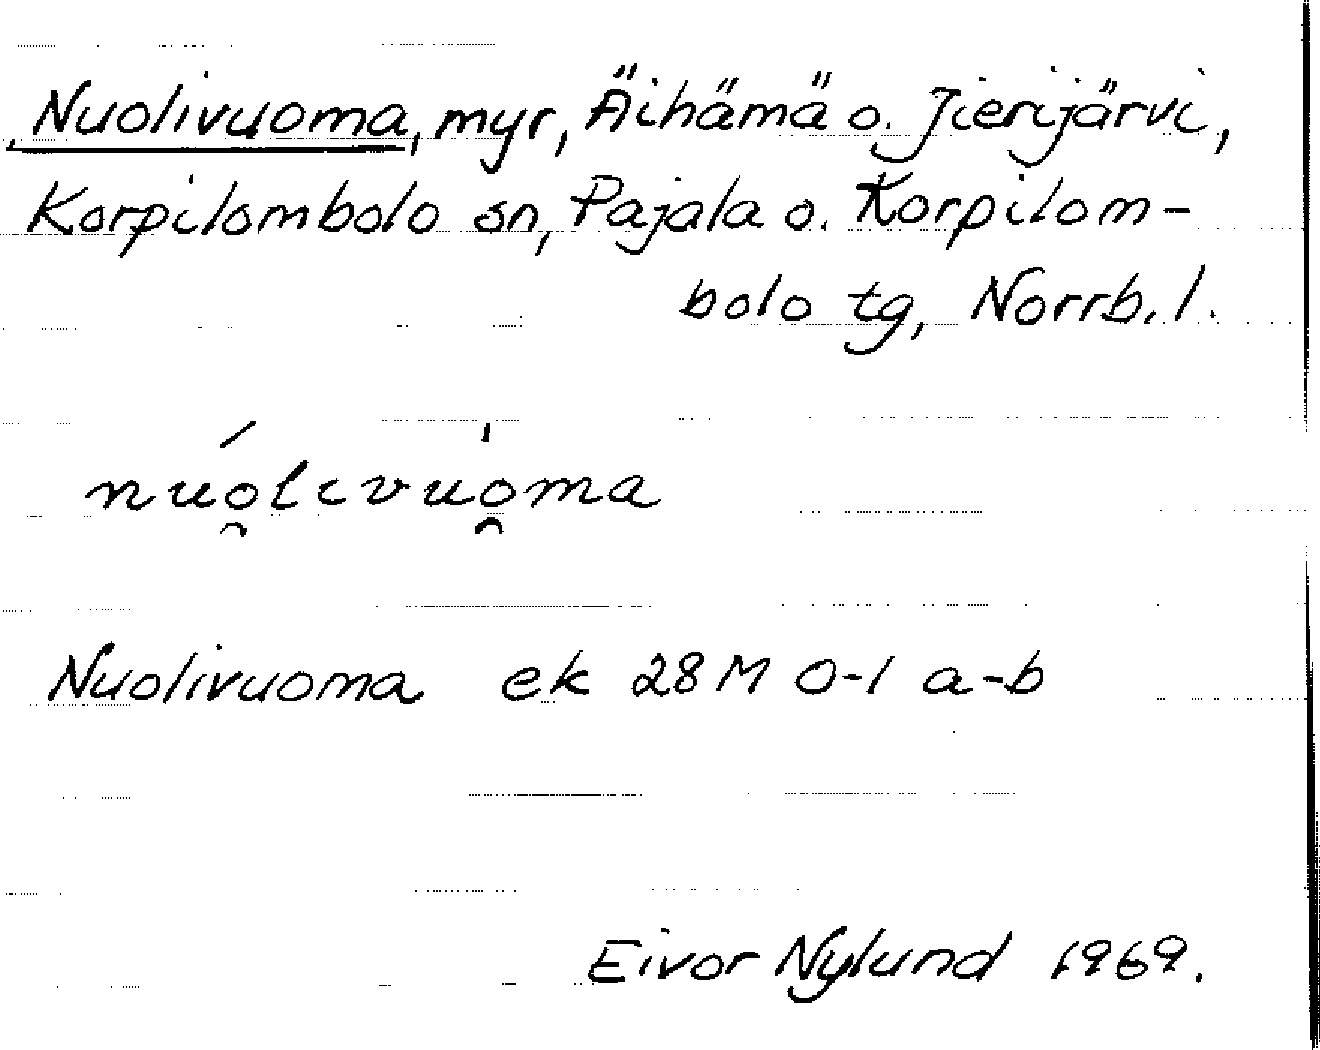 Nuolivuoma, myr, Äihämä o. Jierijärvi,
Korpilombolo sn, Pajala o. Korpilom-
bolo tg, Norrb. l.
nuó̯livuo̯̍ma
Nuolivuoma ek 28 M 0-1 a-b
Eivor Nylund 1969.